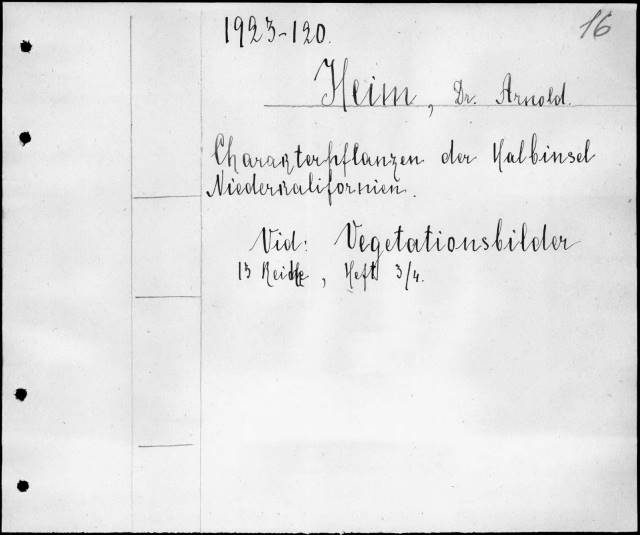 16
1923-120.
Heim, Dr. Arnold.
Charakterpflanzen der Halbinsel
Niederkalifornien.
Vid: Vegetationsbilder
15 Reihe, Heft 3/4.